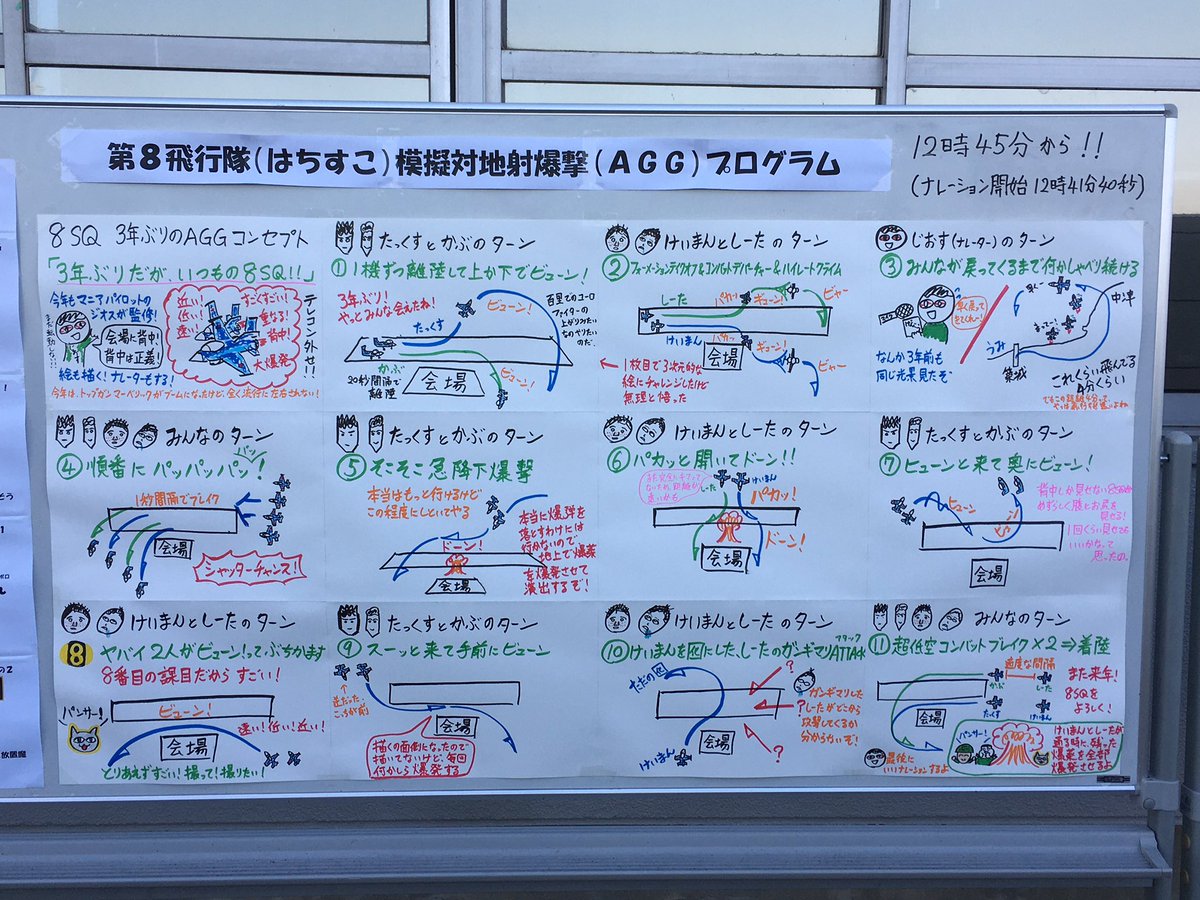 第8飛行隊(はちすこ)模擬対地射爆撃(AGG)プログラム
12時45分から!!
(ナレーション開始12時41分40秒)
8SQ 3年ぶりのAGGコンセプト
「3年ぶりだが、いつもの8SQ!!」
今年もマニアパイロットの
ジオスが監修!
会場に背中!
背中は正義!
絵も描く!ナレーターもする!
近い!
低い!
速い!
すぐすごい!
重なる!
背中!
大爆発
テレコン外せ!!
今年は、トップガンマーベリックがブームになったけど、全く流行に左右されない!
たっくすとかぶのターン
①1機ずつ離陸して上か下でビューン!
3年ぶり!
やっとみんな会えたね!
ビューン!
百里でのユーロ
ファイターの
上がりみたい
なのやりたい
のだ。
たっくす
かぶ
20秒間隔で
離陸
会場
ビューン!
けいまんとしーたのターン
②フォーメーションテイクオフ&コンバットデパーチャー&ハイレートクライム
しーた
パカッ
ギューン!
ビャー
けいまん
パカッ
会場
ギューン!
ビャー
←1枚目で3次元的な
絵にチャレンジしたけど
無理と悟った
じおす(ナレーター)のターン
③みんなが戻ってくるまで何かしゃべり続ける
早く戻って
きてくれー!
なんか3年前も
同じ光景見たぞ
中津
うみ
築城
これくらい飛んでる
4分くらい
みんなのターン
④順番にパッパッパッパン!
1秒間隔でブレイク
会場
シャッターチャンス!
たっくすとかぶのターン
⑤そこそこ急降下爆撃
本当はもっと行けるけど
この程度にしといてやる
ドーン!
会場
本当に爆弾を
落とすわけには
行かないので
地上で爆薬
を爆発させて
演出するぞ!
けいまんとしーたのターン
⑥パカッと開いてドーン!!
しーた
けいまん
パカッ!
ドーン!
会場
たっくすとかぶのターン
⑦ビューンと来て奥にビューン!
ビューン
会場
背中しか見せない8SQが
めずらしく腹とお尻を
見せる!
1回くらい見せても
いいかなって
思ったの。
けいまんとしーたのターン
⑧ヤバイ2人がビューン!ってぶちかます
8番目の課目だからすごい!
パンサー!
ビューン!
速い!低い!近い!
会場
とりあえずすごい!撮って!撮りたい!
たっくすとかぶのターン
⑨スーッと来て手前にビューン
会場
描くの面倒になったので
描いてないけど、毎回
何かしら爆発する
けいまんとしーたのターン
⑩けいまんを囮にした、しーたのガンギマリATTACK
アタック
ただの囮
?
?
?
会場
けいまん
ガンギマリした
しーたがどこから
攻撃してくるか
分からないぞ!
みんなのターン
⑪超低空コンバットブレイク×2⇒着陸
適度な間隔
かぶ
しーた
たっくす
けいまん
会場
また来年!
8SQを
よろしく!
最後に
いいナレーションするよ
パンサー!
けいまんとしーたが
通る時に、残った
爆薬を全部
爆発させるよ